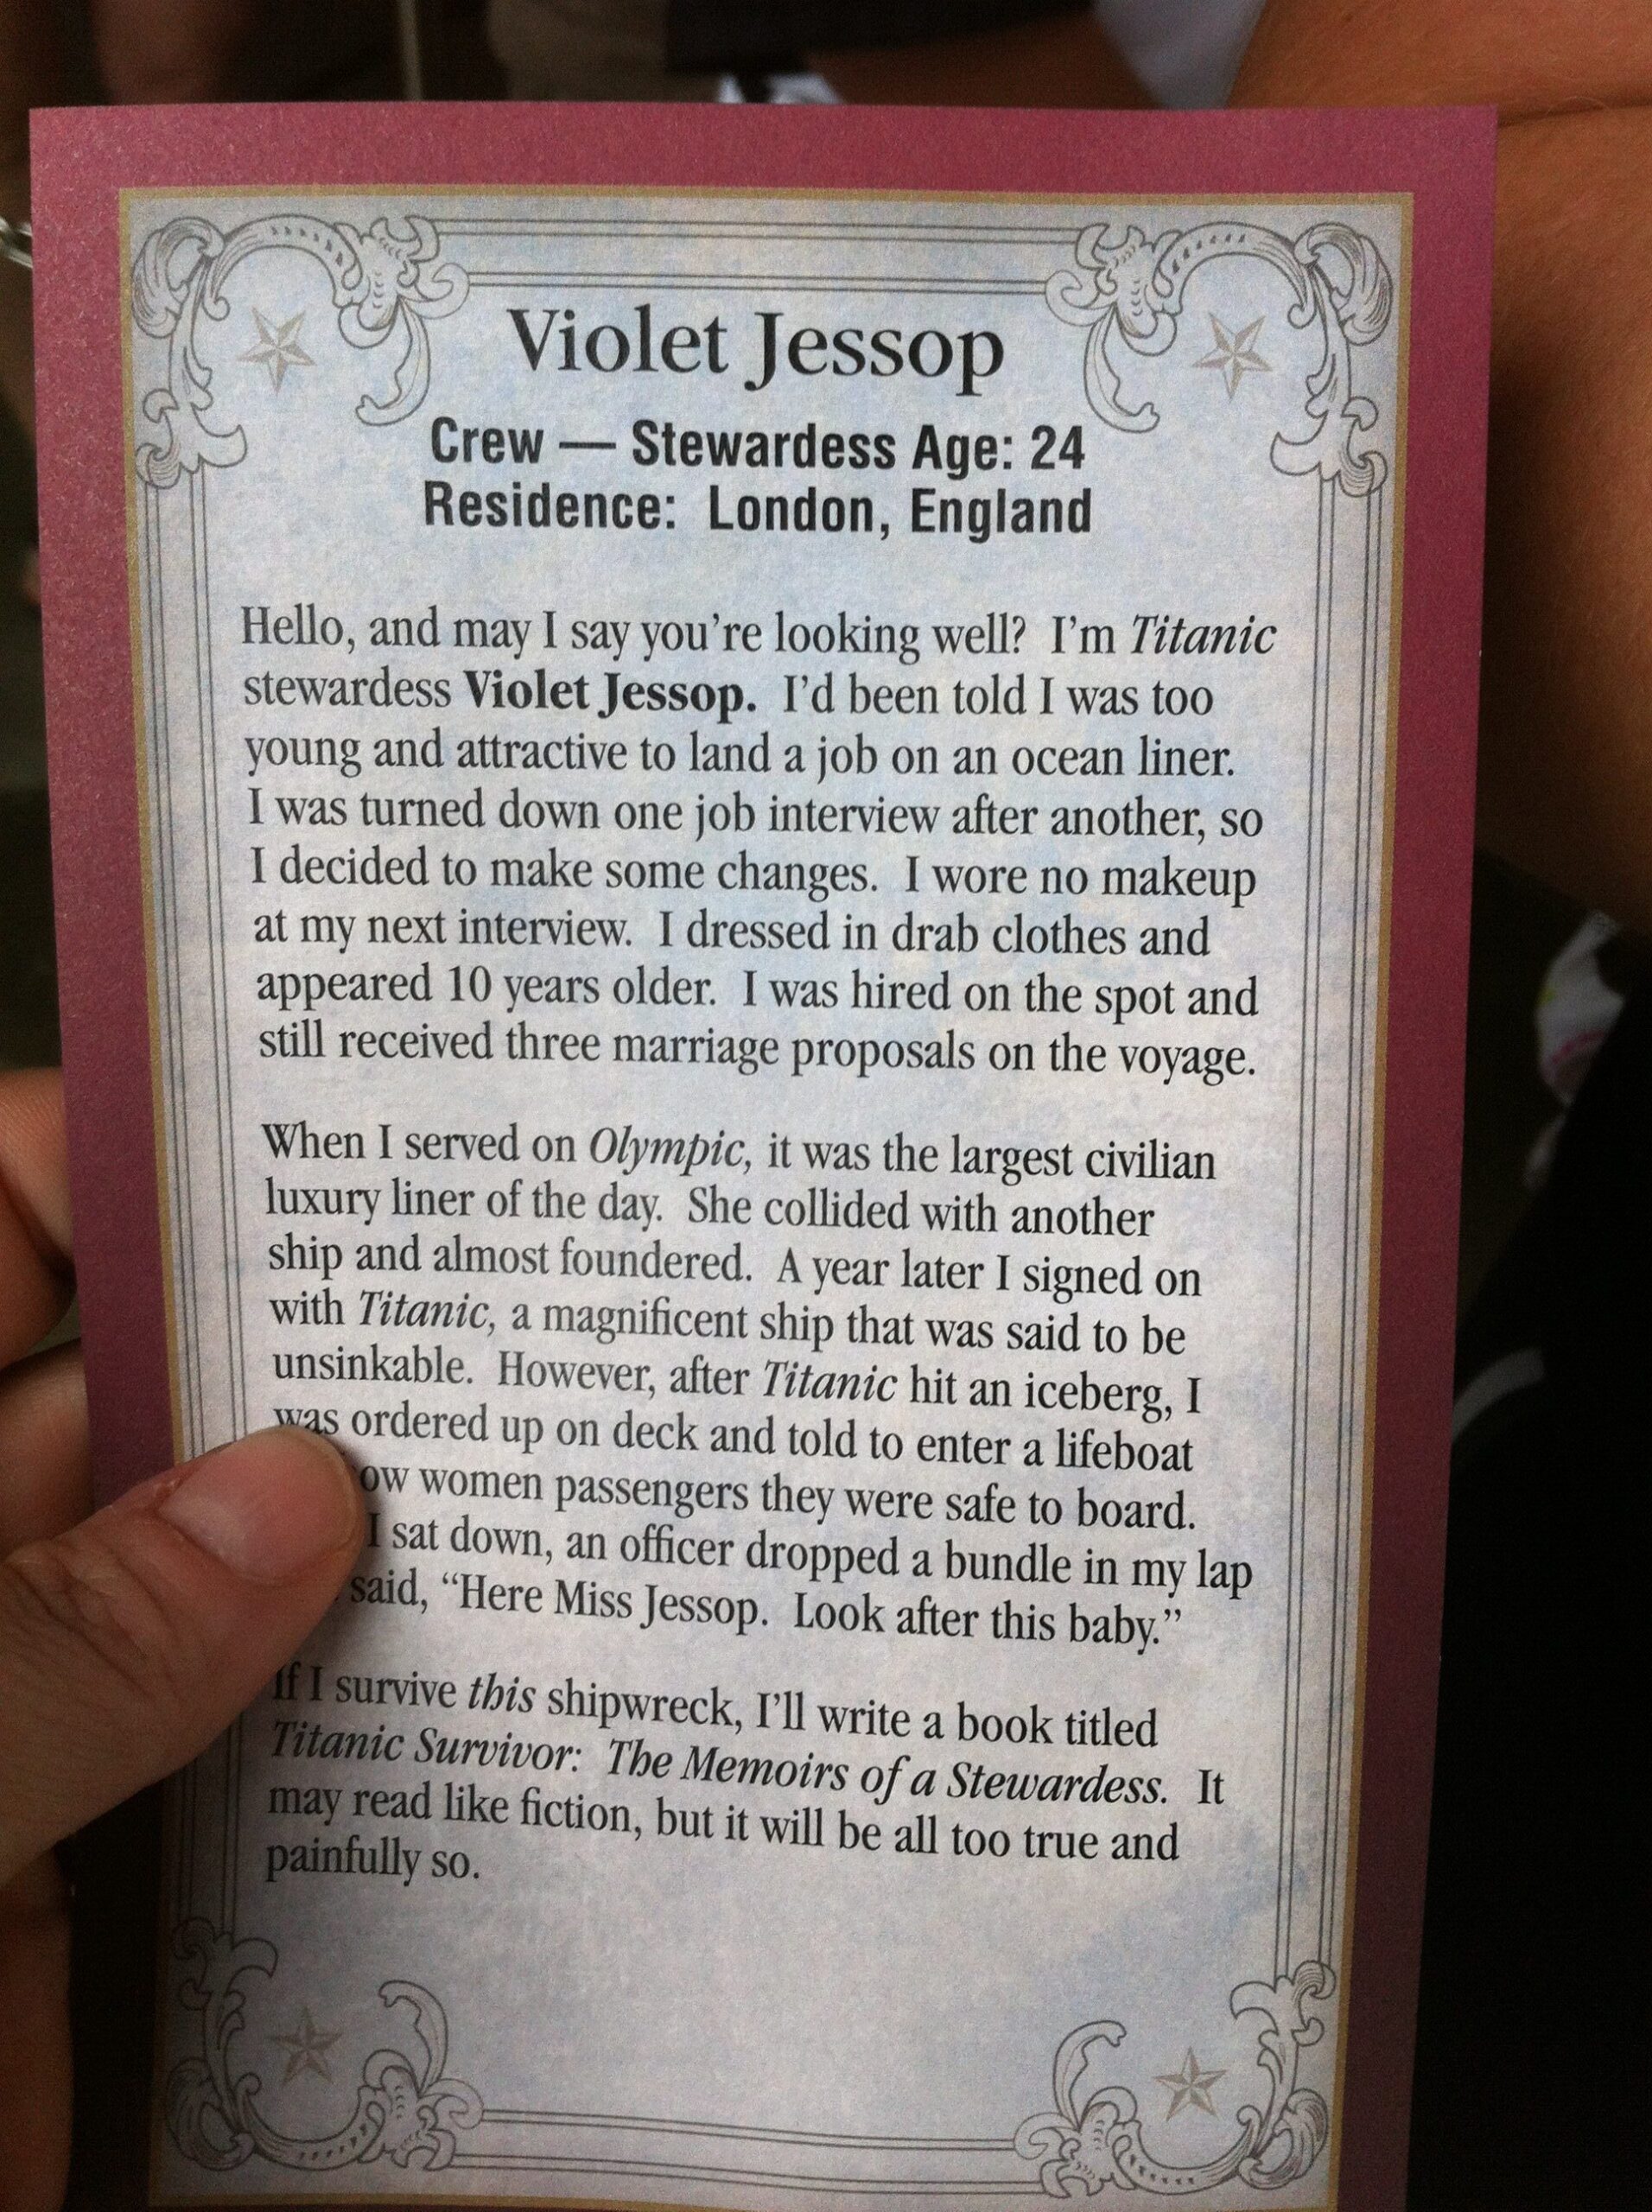 Violet Jessop
Crew — Stewardess Age: 24
Residence: London, England
Hello, and may I say you're looking well? I'm Titanic
stewardess Violet Jessop. I'd been told I was too
young and attractive to land a job on an ocean liner.
I was turned down one job interview after another, so
I decided to make some changes. I wore no makeup
at my next interview. I dressed in drab clothes and
appeared 10 years older. I was hired on the spot and
still received three marriage proposals on the voyage.
When I served on Olympic, it was the largest civilian
luxury liner of the day. She collided with another
ship and almost foundered. A year later I signed on
with Titanic, a magnificent ship that was said to be
unsinkable. However, after Titanic hit an iceberg, I
was ordered up on deck and told to enter a lifeboat
women passengers they were safe to board.
I sat down, an officer dropped a bundle in my lap
said, "Here Miss Jessop. Look after this baby."
If I survive this shipwreck, I'll write a book titled
Titanic Survivor: The Memoirs of a Stewardess. It
may read like fiction, but it will be all too true and
painfully so.